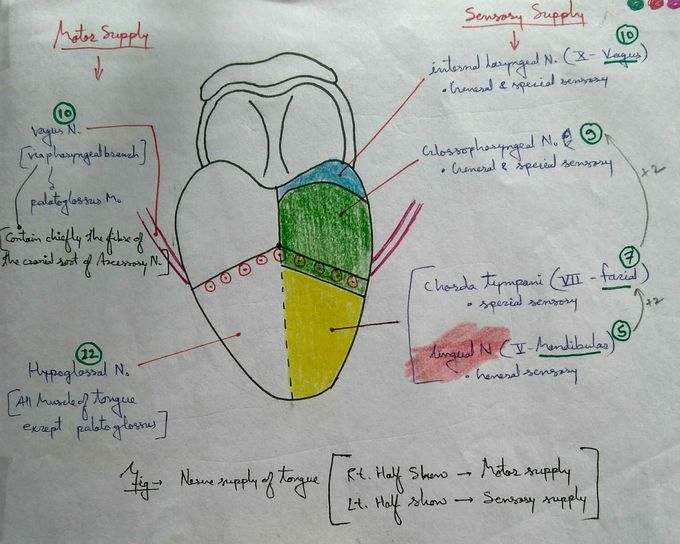 Motor Supply
Sensory Supply
10
Vagus N.
[via pharyngeal branch]
palatoglossus M.
[Contain chiefly the fibre of
the cranial root of Accessory N.]
12
Hypoglossal N.
[All Muscle of tongue
except palatoglossus]
10
internal laryngeal N. (X - Vagus)
• General & special sensory
9
Glossopharyngeal N.
• General & special sensory
+2
7
Chorda tympani (VII - facial)
• special sensory
+2
5
lingual N (V - Mandibular)
• General sensory
Fig → Nerve supply of tongue
[Rt. Half Show → Motor supply
Lt. Half show → Sensory supply]